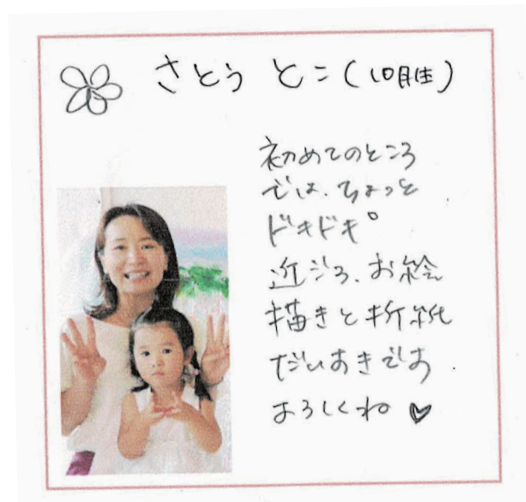 さとう とこ(10月生)
初めてのところ
では、ちょっと
ドキドキ。
近ごろ、お絵
描きと折紙
だいすきです
よろしくね ♡